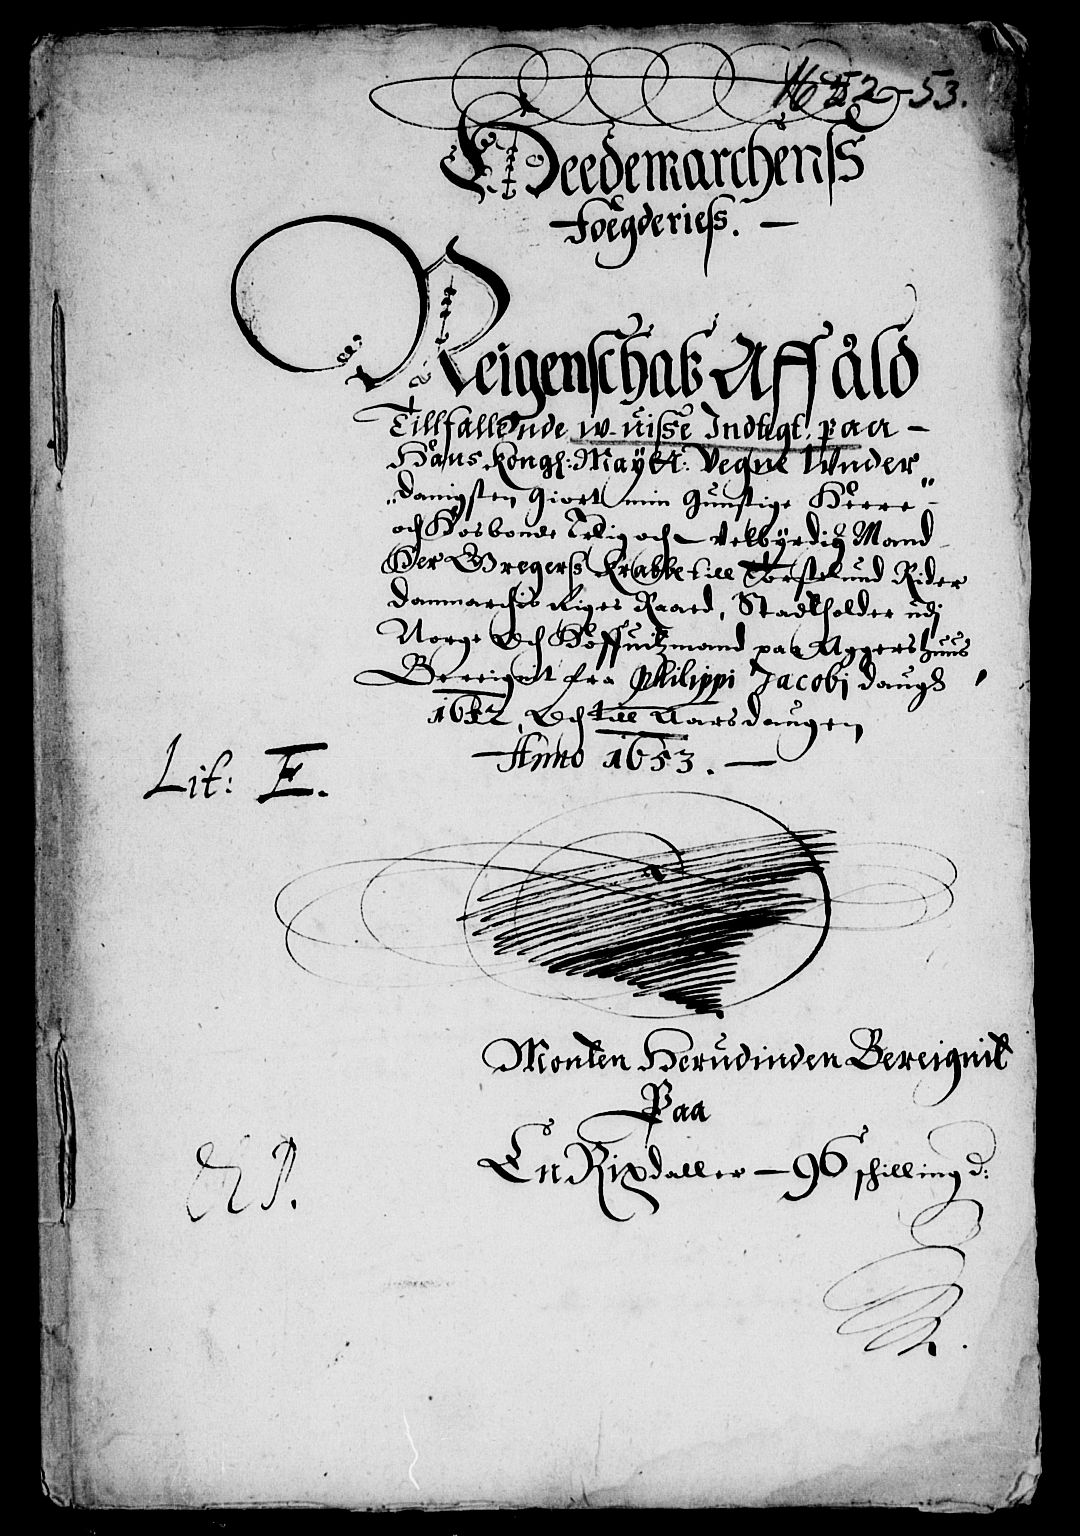 1652-53.
Heedemarchenss
Foegderiess. —
Reigenschab Aff åld
Tillfallende w-uisse Indtegt: paa —
Hans Kongl: Maÿtt: Vegne Wnder
danigsten giort min gunstige Herre
och Hosbonde Erlig och Velbÿrdig Mand
Her Gregerss Krabbe till Torstelund Rider
Danmarchis Riges Raaed, Stadtholder udj
Norge Och Höffuitzmand paa Aggershuus
Bereignet fra Philippi Jacobj daugh
1652, Och till Aarsdaugen
Anno 1653. —
Lit: E.
Monten Herudinden Bereignit
Paa
En Rixdaller — 96 schilling d: